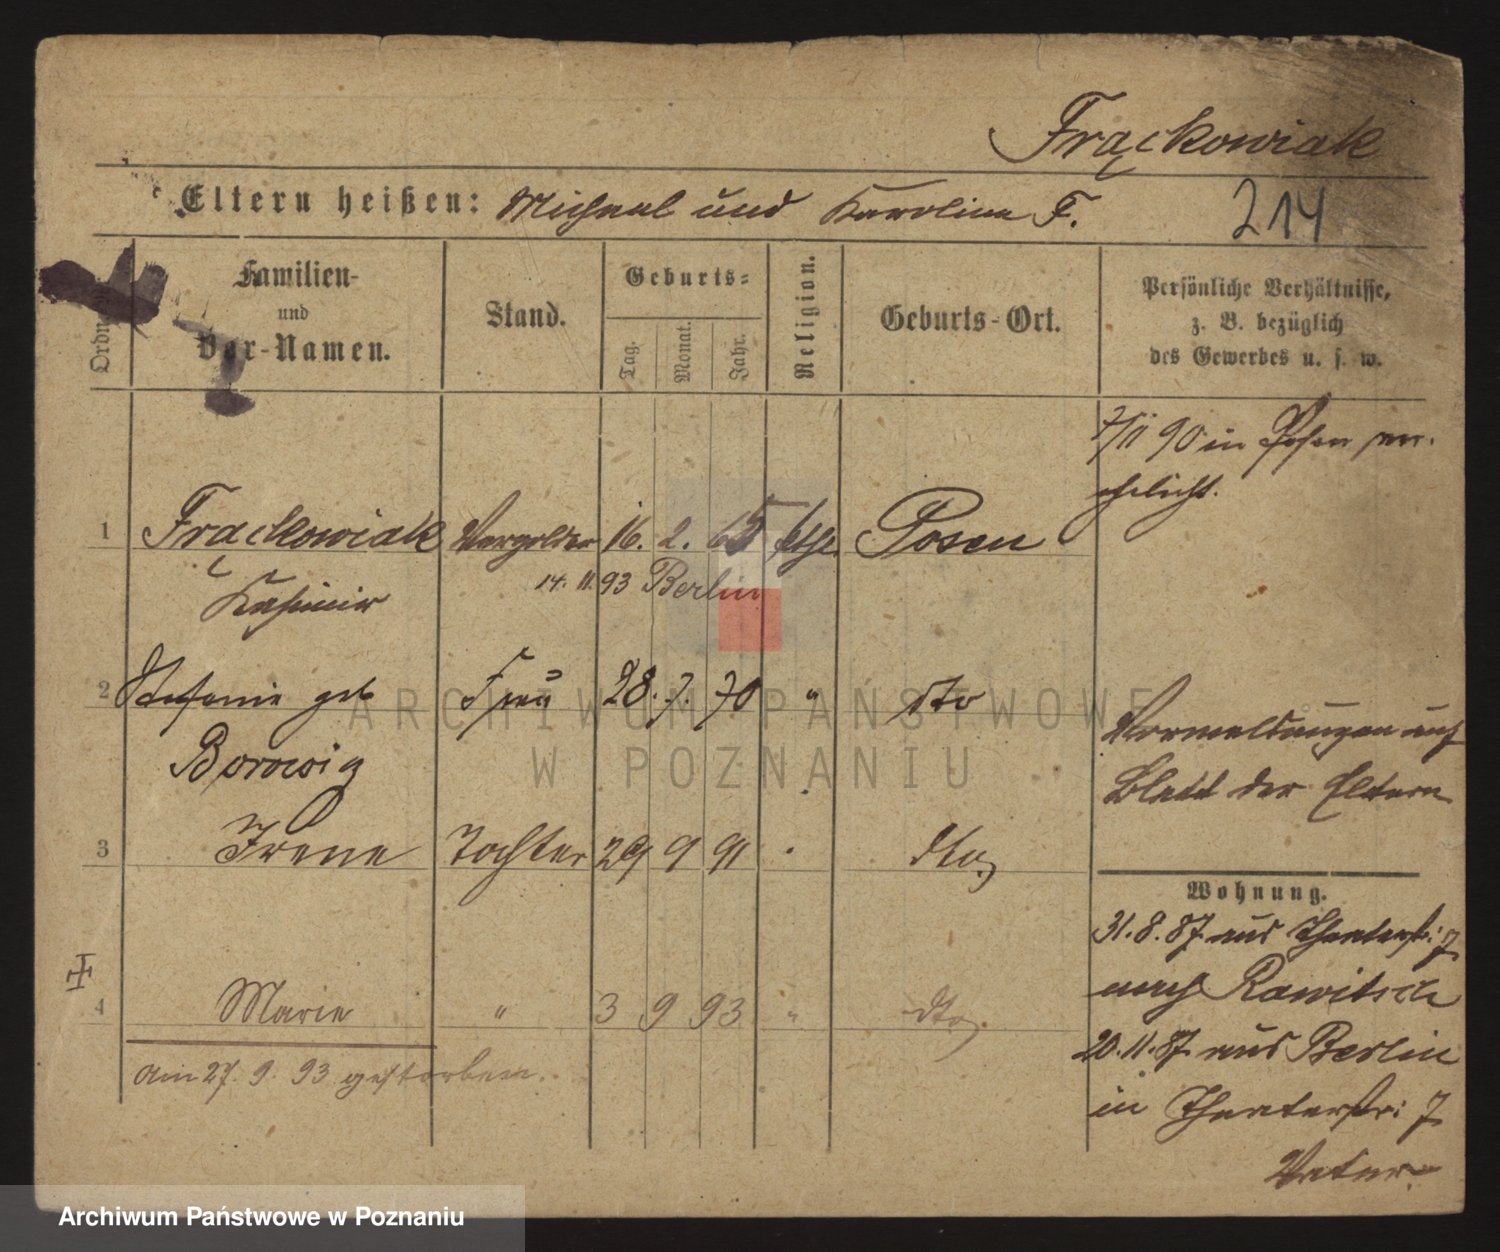 Frąckowiak
Eltern heißen: Michael und Karolina F.
214
Ordn
Familien-
und
Vor-Namen.
Stand.
Geburts-
Tag.
Monat.
Jahr.
Religion.
Geburts-Ort.
Persönliche Verhältnisse,
z. B. bezüglich
des Gewerbes u. s. w.
7/II 90 in Posen ver-
ehelicht.
1 Frąckowiak Vergolder 16. 2. 65 kth. Posen
14. 11. 93 Berlin
Kasimir
2 Stefanie geb Frau 28. 7. 70 " dto
Borowig
Vormeldungen auf
Blatt der Eltern
3 Irene Tochter 29 9 91 . dto.
Wohnung.
31. 8. 87 aus Theaterstr: 7
nach Rawitsch
4 Marie " 3 9 93 " dto.
20. 11. 87 aus Berlin
am 27. 9. 93 gestorben.
in Theaterstr: 7
Vater.
ARCHIWUM PAŃSTWOWE
W POZNANIU
Archiwum Państwowe w Poznaniu